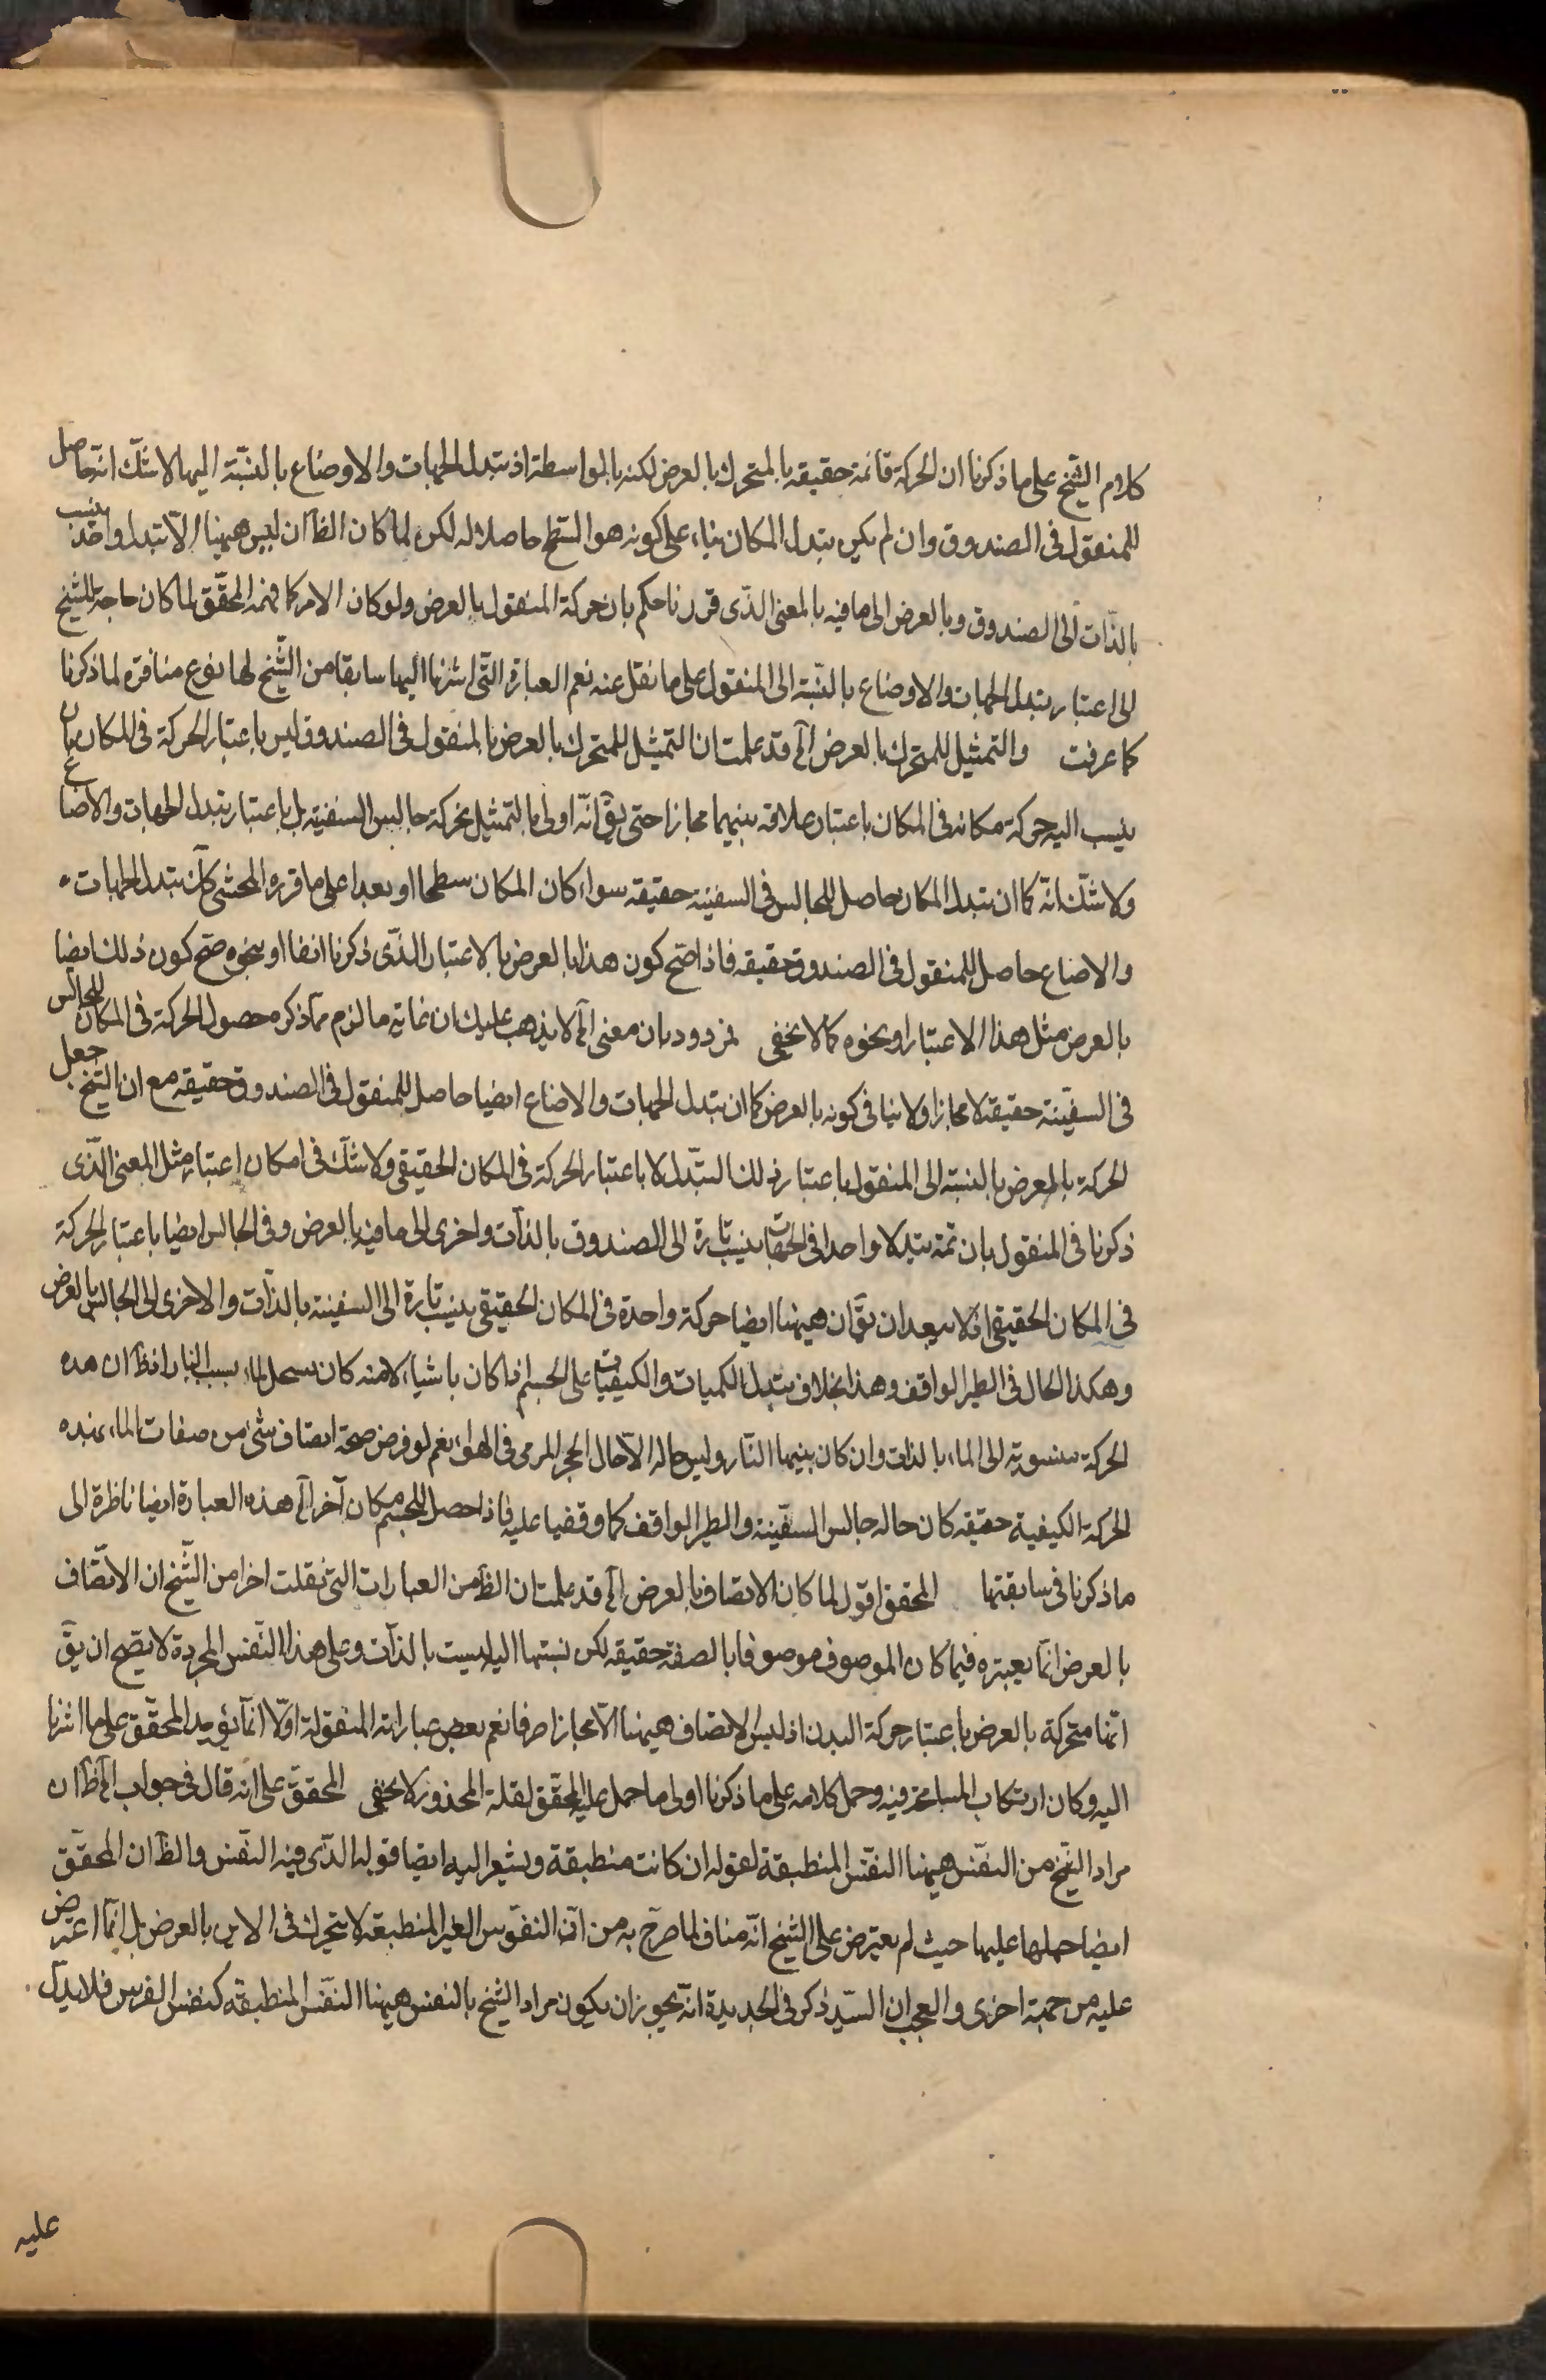 كلام الشيخ على ما ذكرنا ان الحركة قائمة حقيقه بالمتحرك بالعرض لكنه بالمواسطة اذ تبدل الجهات والاوضاع بالنسبة اليها لا شك انه حاصل
للمنقول فى الصندوق وان لم يكن تبدل المكان بناء على كونه هو السطح حاصلا له لكن لما كان الظ ان ليس ههنا الا تبدل واحد ينسب
بالذات الى الصندوق وبالعرض الى ما فيه بالمعنى الذى قررنا حكم بان حركة المنقول بالعرض ولو كان الامر كما فهمه المحقق لما كان حاجة للشيخ
الى اعتبار تبدل الجهات والاوضاع بالنسبة الى المنقول على ما نقل عنه نعم العبارة التى اشرنا اليها سابقا من الشيخ لها نوع منافرة لما ذكرنا
كما عرفت والتمثيل للمتحرك بالعرض الخ قد علمت ان التمثيل للمتحرك بالعرض بالمنقول فى الصندوق ليس باعتبار الحركة فى المكان بان
ينسب اليه حركة مكانه فى المكان باعتبار علاقة بينهما مجازا حتى يق انه اولى بالتمثيل بحركة جالس السفينة بل باعتبار تبدل الجهات والاضاع
ولا شك انه كما ان تبدل المكان حاصل للجالس فى السفينة حقيقه سواء كان المكان سطحا او بعدا على ما قرره المحشى كك تبدل الجهات
والاضاع حاصل للمنقول فى الصندوق حقيقه فاذا صح كون هذا بالعرض بالاعتبار الذى ذكرنا انفا او بنحوه صح كون ذلك ايضا
بالعرض مثل هذا الاعتبار او نحوه كما لا يخفى فمردود بان معنى الخ لا يذهب عليك ان غاية ما لزم مما ذكره حصول الحركة فى المكان للجالس
فى السفينة حقيقة لا مجازا ولا ينافى كونه بالعرض كما ان تبدل الجهات والاضاع ايضا حاصل للمنقول فى الصندوق حقيقه مع ان الشيخ جعل
الحركة بالعرض بالنسبة الى المنقول باعتبار ذلك التبدل لا باعتبار الحركة فى المكان الحقيقى ولا شك فى امكان اعتبار مثل المعنى الذى
ذكرنا فى المنقول بان ثمة تبدلا واحدا فى الجهات ينسب تارة الى الصندوق بالذات واخرى الى ما فيه بالعرض وفى الجالس ايضا باعتبار الحركة
فى المكان الحقيقى اذ لا يبعد ان يق ان ههنا ايضا حركة واحدة فى المكان الحقيقى ينسب تارة الى السفينة بالذات والاخرى الى الجالس بالعرض
وهكذا الحال فى الطير الواقف وهذا بخلاف تبدل الكميات والكيفيات على الجسم اذا كان باشياء لامنه كان الماء بسبب النار اذ ظ ان هذه
الحركة منسوبة الى الماء بالذات وان كان بينهما النار وليس حاله الا حال الحجر المرمى فى الهواء نعم لو فرض صحة اتصاف شئ من صفات الماء بهذه
الحركة الكيفية حقيقه كان حاله جالس السفينة والطير الواقف كما وقفنا عليه فاذا حصل للجسم مكان آخر الخ هذه العبارة ايضا ناظرة الى
ما ذكرنا فى سابقتها المحقق اقول لما كان الاتصاف بالعرض الخ قد علمت ان الظ من العبارات التى نقلت اخرا من الشيخ ان الاتصاف
بالعرض انما يعتبره فيما كان الموصوف موصوفا بالصفة حقيقه لكن نسبتها اليه ليست بالذات وعلى هذا النفس المجردة لا يصح ان يق
انها متحركة بالعرض باعتبار حركة البدن اذ ليس الاتصاف ههنا الا مجازا صرفا نعم بعض عباراته المنقولة اولا انما يؤيد المحقق على ما اشرنا
اليه وكان ارتكاب المسامحة فيه وحمل كلامه على ما ذكرنا اولى ما حمل عليه المحقق لقلة المحذور كما لا يخفى المحقق على انه قال فى جواب الخ ظ ان
مراد الشيخ من النفس ههنا النفس المنطبقة لقوله ان كانت منطبقة ويشعر اليه ايضا قوله الذى فيه النفس والظ ان المحقق
ايضا حملها عليها حيث لم يعترض على الشيخ انه مناف لما صرح به من ان النفوس الغير المنطبقة لا يتحرك فى الاين بالعرض بل انما اعترض
عليه من جهة اخرى والعجب ان السيد ذكر فى الجديدة انه يجوز ان يكون مراد الشيخ بالنفس ههنا النفس المنطبقة كنفس الفرس فلا يدل
عليه